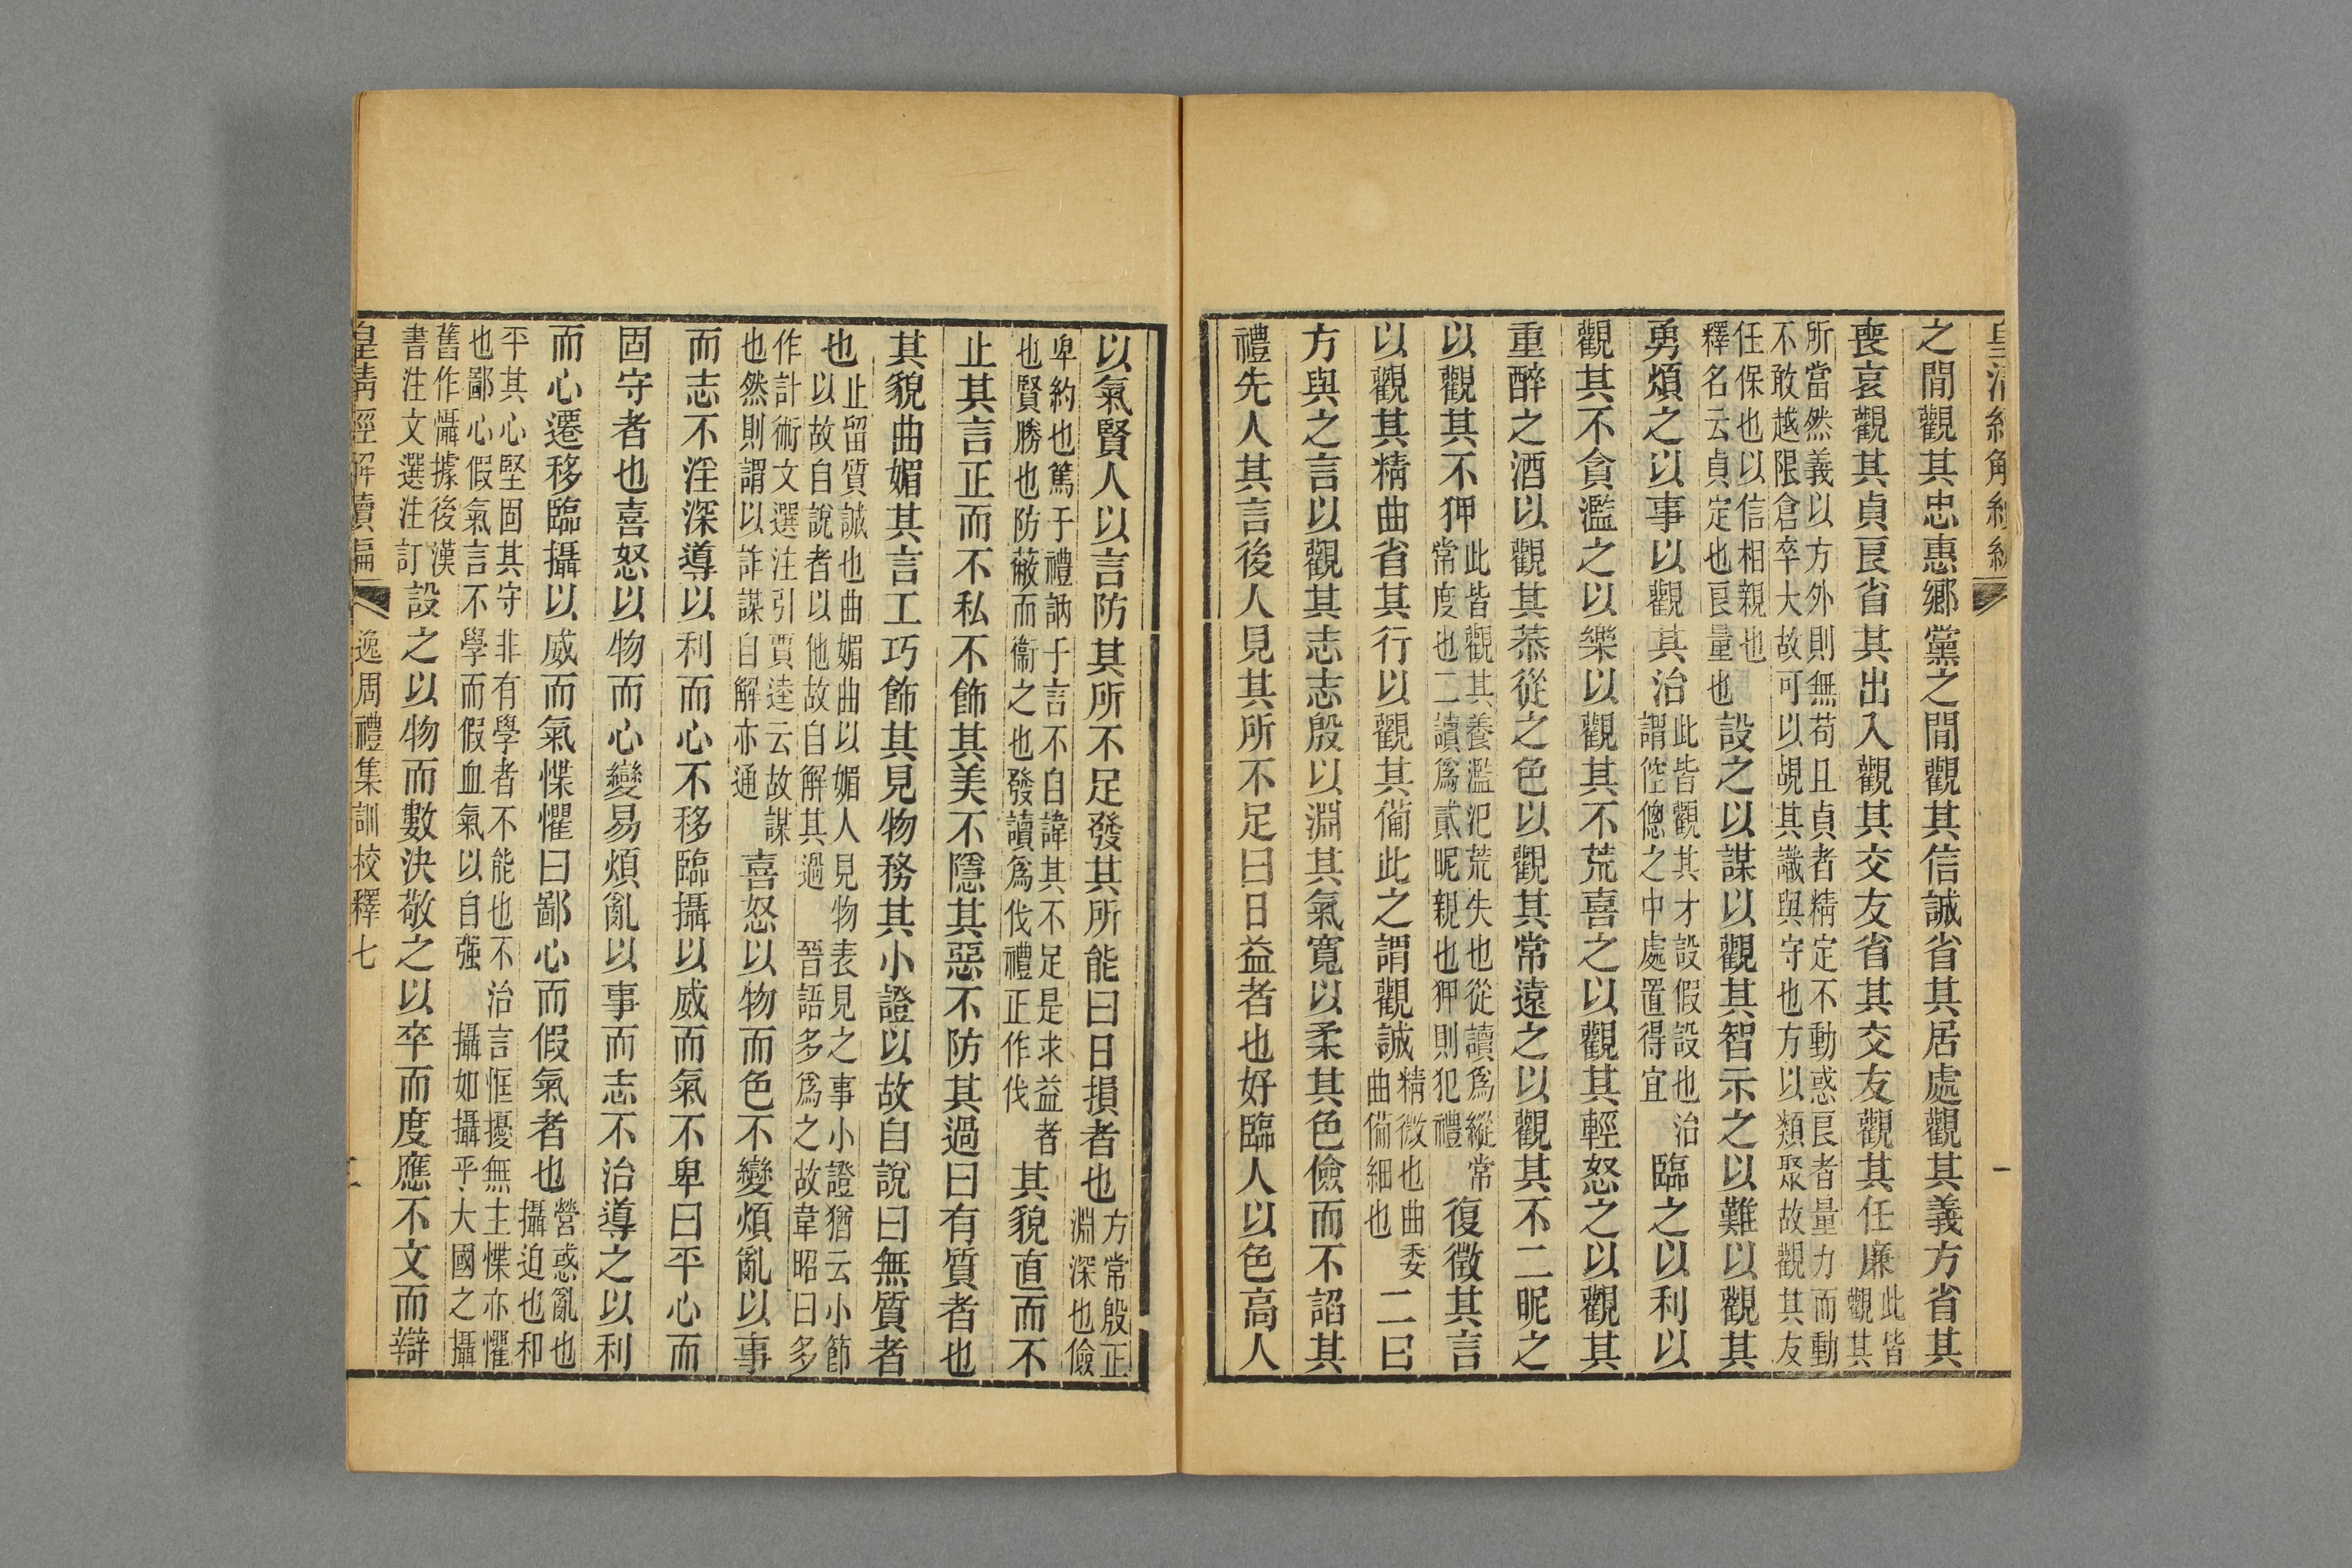 之間觀其忠惠鄉黨之間觀其信誠省其居處觀其義方省其
喪哀觀其貞良省其出入觀其交友省其交友觀其任廉此皆觀其
所當然義以方外則無苟且貞者精定不動惑良者量力而動
不敢越限倉卒大故可以覘其識與守也方以類聚故觀其友
任保也以信相親也
釋名云貞定也良量也
設之以謀以觀其智示之以難以觀其
勇煩之以事以觀其治此皆觀其才設假設也治謂倥傯之中處置得宜臨之以利以
觀其不貪濫之以樂以觀其不荒喜之以觀其輕怒之以觀其
重醉之酒以觀其恭從之色以觀其常遠之以觀其不二昵之
以觀其不狎此皆觀其養濫氾荒失也從讀為縱常常度也二讀為貳昵親也狎則犯禮復徵其言
以觀其精曲省其行以觀其備此之謂觀誠精微也曲委曲備細也二曰
方與之言以觀其志志殷以淵其氣寬以柔其色儉而不諂其
禮先人其言後人見其所不足曰日益者也好臨人以色高人
以氣賢人以言防其所不足發其所能曰日損者也方常殷正淵深也儉
卑約也篤于禮訥于言不自諱其不足是求益者
也賢勝也防蔽而衞之也發讀為伐禮正作伐
其貌直而不
止其言正而不私不飾其美不隱其惡不防其過曰有質者也
其貌曲媚其言工巧飾其見物務其小證以故自說曰無質者
也止留質誠也曲媚曲以媚人見物表見之事小證猶云小節以故自說者以他故自解其過晉語多為之故韋昭曰多
作計術文選注引賈逵云故謀
也然則謂以詐謀自解亦通
喜怒以物而色不變煩亂以事
而志不淫深導以利而心不移臨攝以威而氣不卑曰平心而
固守者也喜怒以物而心變易煩亂以事而志不治導之以利
而心遷移臨攝以威而氣惵懼曰鄙心而假氣者也營惑亂也攝迫也和
平其心堅固其守非有學者不能也不治言恇擾無主惵亦懼
也鄙心假氣言不學而假血氣以自强攝如攝乎大國之攝
舊作懾據後漢
書注文選注訂
設之以物而數決敬之以卒而度應不文而辯
皇清經解續編
逸周禮集訓校釋七